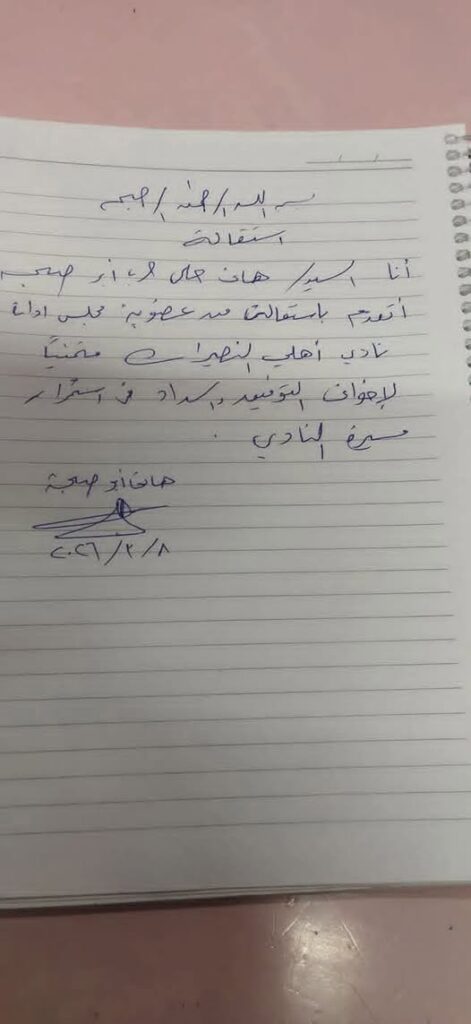 بسم الله الرحمن الرحيم
استقالة
أنا السيد/ هاني أبو
أتقدم باستقالتي من عضوية مجلس ادارة
نادي أهلي النصيرات متمنياً
لإخواني التوفيق والسداد في استمرار
مسيرة النادي .
هاني أبو
٢٠٢٦/٣/٨